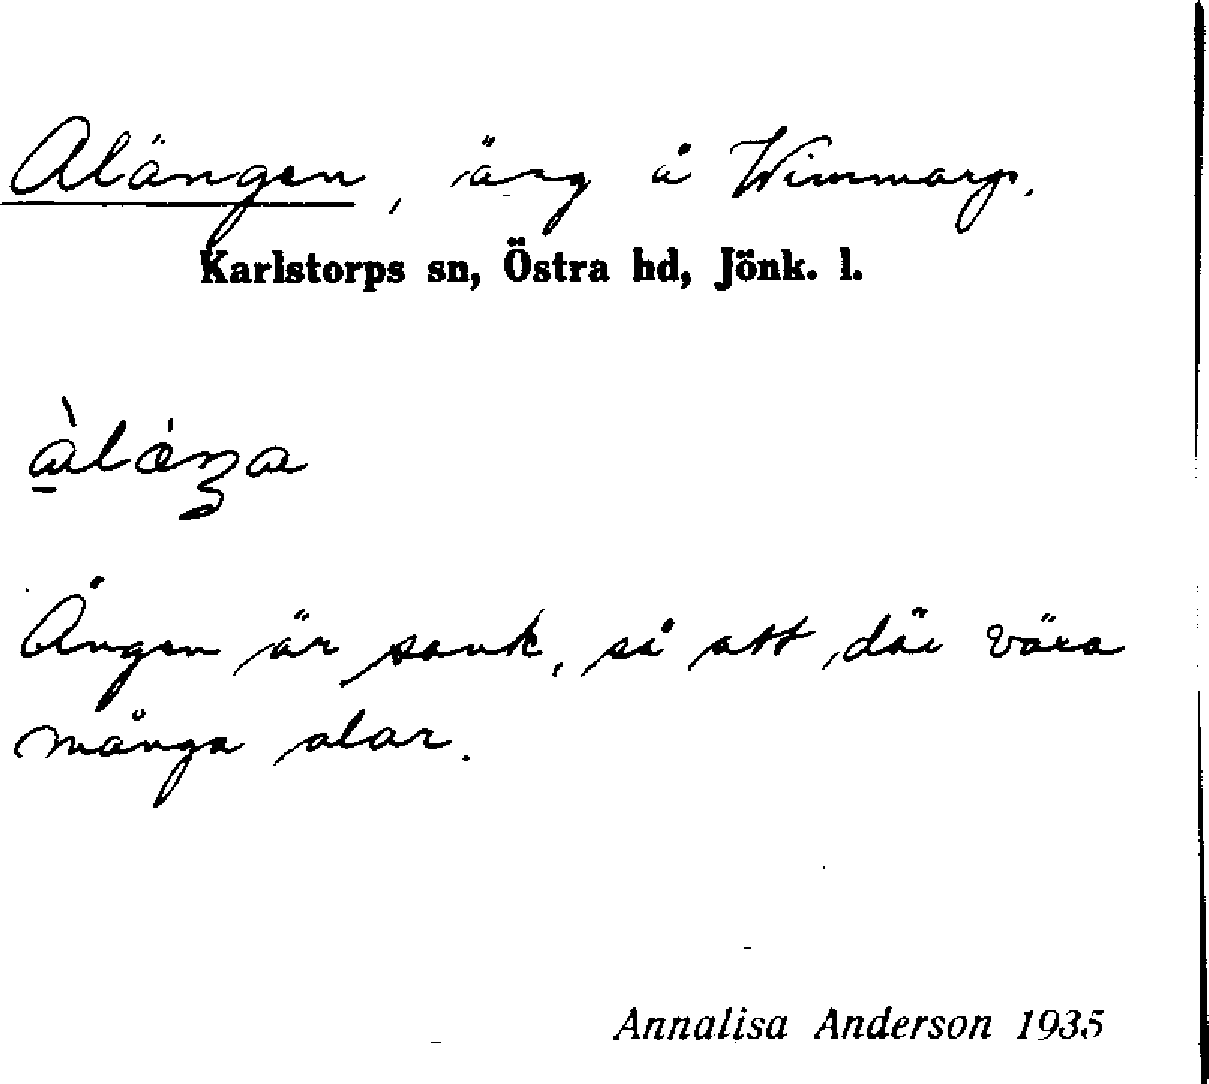 Alängen, äng å Wimmarp.
Karlstorps sn, Östra hd, Jönk. l.
Ängen är sank, så att där växa
många alar.
Annalisa Anderson 1935